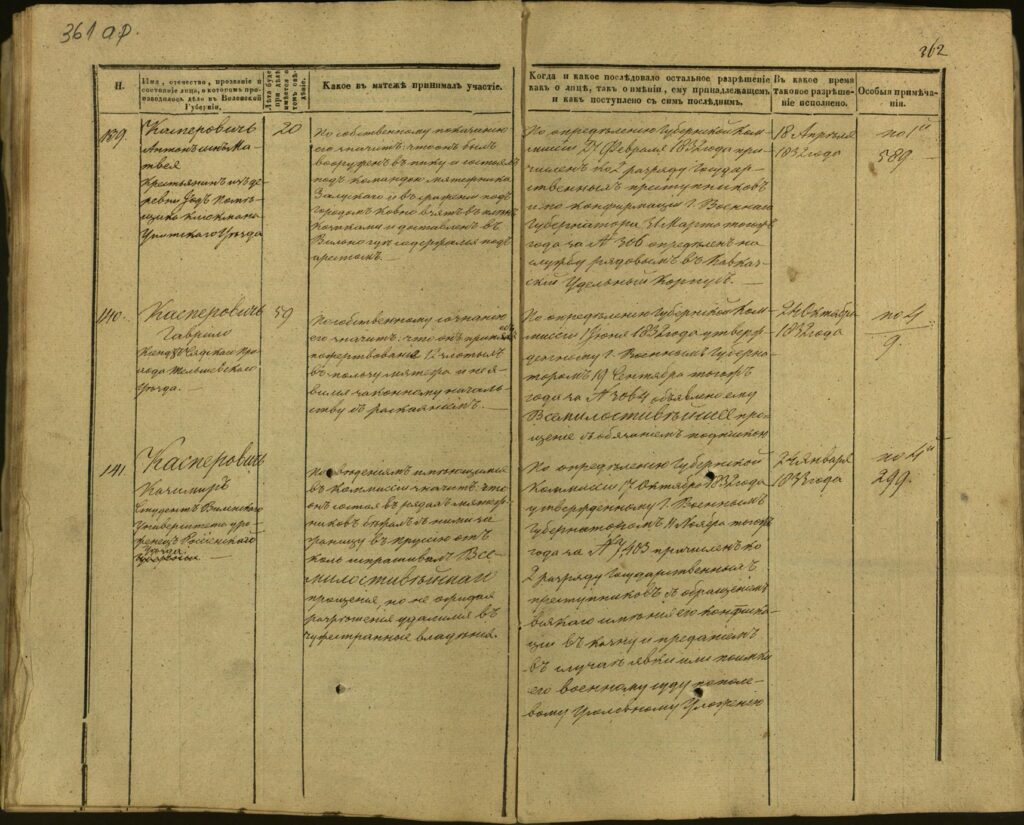 361 ар.
362
Н.
Имя, отечество, прозваніе и
состояніе лица, о которомъ про-
изводилось дѣло въ Виленской
Губерніи.
Лѣта буде
при дѣлѣ
имѣется о
томъ свѣ-
дѣніе.
Какое въ мятежѣ принималъ участіе.
Когда и какое послѣдовало остальное разрѣшеніе
какъ о лицѣ, такъ о имѣніи, ему принадлежащемъ
и какъ поступлено съ симъ послѣднимъ.
Въ какое время
таковое разрѣше-
ніе исполнено.
Особыя примѣча-
нія.
139.
Касперовичъ
Антонъ сынъ Ма-
твея
Крестьянинъ изъ де-
ревни
Уѣзда
20
По собственному показанію
его значитъ: что онъ былъ
вооруженъ въ пику и состоялъ
подъ командою мятежника
Залускаго и въ сраженіи подъ
городомъ Ковно взятъ въ плѣнъ
Козаками и доставленъ въ
Вильно гдѣ содержался подъ
арестомъ.
По опредѣленію Губернской Ком-
мисіи 27 Февраля 1832 года при-
численъ ко 2 разряду Государ-
ственныхъ преступниковъ
и по конфирмаціи Г. Военнаго
Губернатора 31 Марта тогожъ
года за № 306 опредѣленъ на
службу рядовымъ въ Кавказ-
скій Удельный Корпусъ.
18 Апрѣля
1832 года
по 1й
589
140.
Касперовичъ
Гаврило
Ксендзъ
Тельшевскаго
Уѣзда.
59
По собственному сознанію
его значитъ: что онъ
пожертвованія 12 злотыхъ
въ пользу мятежа и
явился законному началь-
ству съ раскаяніемъ.
По опредѣленію Губернской Ком-
мисіи 1 Июня 1832 года утверж-
денному Г. Военнымъ Губерна-
торомъ 19 Сентября тогожъ
года за № 3064 объявлено ему
Всемилостивѣйшее про-
щеніе съ обязаніемъ подпискою
24 Октября
1832 года
по 4
9.
141
Касперовичъ
Казимиръ
Студентъ Виленскаго
Университета уро-
женецъ Россіенскаго
Уѣзда
По свѣденіямъ имѣющимся
въ Коммисіи значитъ: что
онъ состоя въ рядахъ мятеж-
никовъ бѣжалъ съ ними за
границу въ Пруссію отъ
коль испрашивалъ Все-
милостивѣйшаго
прощенія, но не ожидая
разрѣшенія удалился въ
чужестранные владѣнія.
По опредѣленію Губернской
Коммисіи 17 Октября 1832 года
утвержденному Г. Военнымъ
Губернаторомъ 11 Ноября тогожъ
года за № 7483 причисленъ ко
2 разряду Государственныхъ
преступниковъ съ обращеніемъ
всякаго имѣнія его конфиска-
ціи въ казну и преданіемъ
въ случаѣ явки или поимки
его военному суду по поле-
вому Уголовному Уложенію
24 Января
1833 года
по 4й
299.